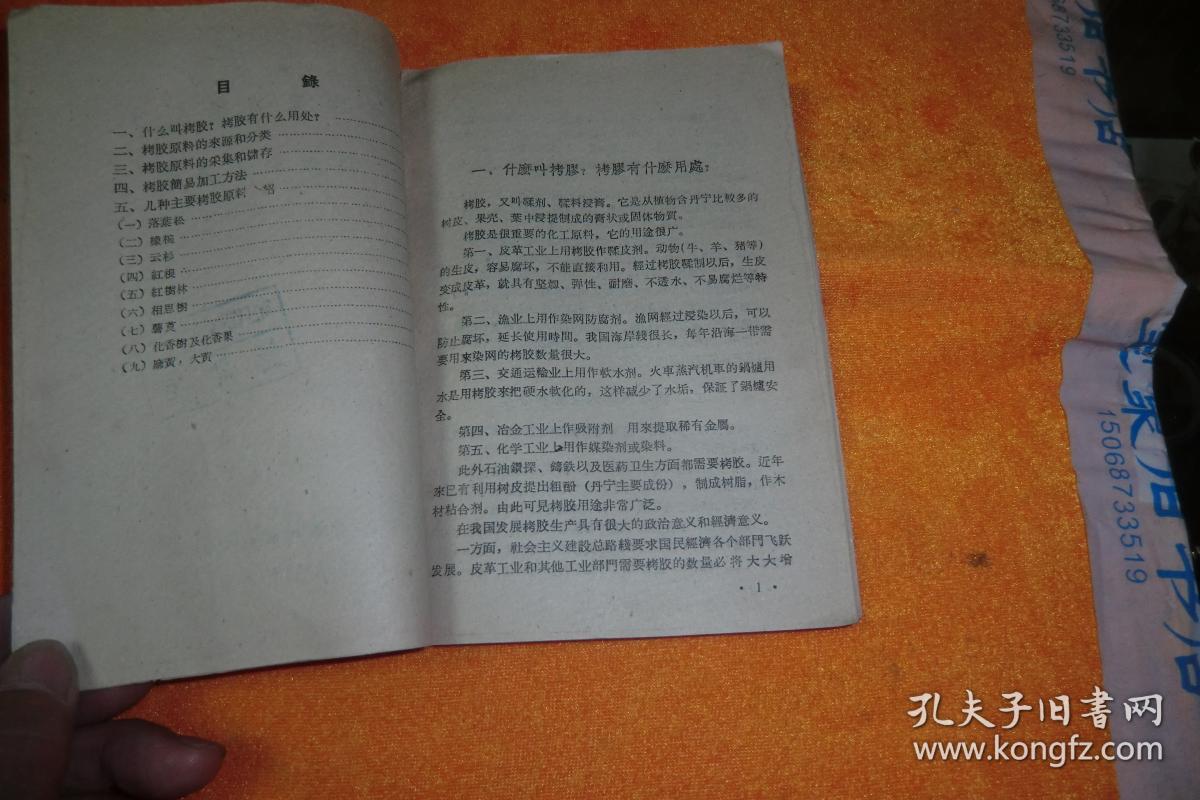 目　錄
一、什么叫栲胶？栲胶有什么用处？
二、栲胶原料的來源和分类
三、栲胶原料的采集和儲存
四、栲胶簡易加工方法
五、几种主要栲胶原料
（一）落葉松
（二）橡椀
（三）云杉
（四）紅根
（五）紅樹林
（六）相思樹
（七）薯莨
（八）化香樹及化香果
（九）大黃
一、什麼叫栲膠？栲膠有什麼用處？
栲胶，又叫鞣剂、鞣料浸膏。它是从植物含丹宁比較多的
树皮、果壳、葉中浸提制成的膏状或固体物質。
栲胶是很重要的化工原料，它的用途很广。
第一、皮革工业上用栲胶作鞣皮剂。动物（牛、羊、猪等）
的生皮，容易腐坏，不能直接利用。經过栲胶鞣制以后，生皮
变成皮革，就具有坚韌、弹性、耐磨、不透水、不易腐烂等特
性。
第二、漁业上用作染网防腐剂。漁网經过浸染以后，可以
防止腐坏，延长使用時間。我国海岸綫很长，每年沿海一带需
要用來染网的栲胶数量很大。
第三、交通运輸业上用作軟水剂。火車蒸汽机車的鍋爐用
水是用栲胶來把硬水軟化的，这样减少了水垢，保証了鍋爐安
全。
第四、冶金工业上作吸附剂　用來提取稀有金属。
第五、化学工业上用作媒染剂或染料。
此外石油鑽探、鑄鉄以及医葯卫生方面都需要栲胶。近年
來巳有利用树皮提出粗酚（丹宁主要成份），制成树脂，作木
材粘合剂。由此可見栲胶用途非常广泛。
在我国发展栲胶生产具有很大的政治意义和經濟意义。
一方面，社会主义建設总路綫要求国民經濟各个部門飞跃
发展。皮革工业和其他工业部門需要栲胶的数量必将大大增
· 1 ·
15068733519
书店
15068733519
孔夫子旧書网
www.kongfz.com